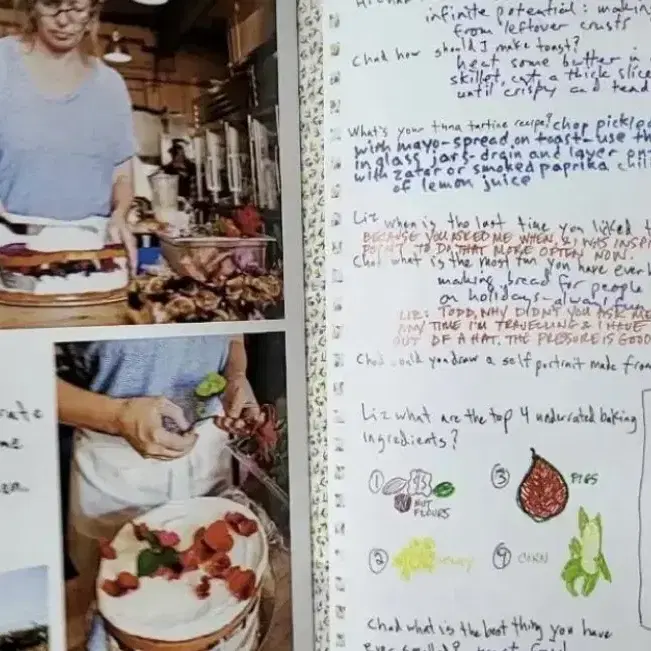 infinite potential: making
from leftover crusts
Chad how should I make toast?
heat some butter in
skillet, cut a thick slice
until crispy and
What's your tuna tartine recipe? chop pickled
with mayo-spread on toast-use th
in glass jars-drain and layer on
with zatar or smoked paprika
of lemon juice
Liz when is the last time you licked
BECAUSE YOU ASKED ME WHEN, & I WAS INSPI
POINT TO DO THAT MORE OFTEN NOW.
Chad what is the most fun you have ever
making bread for people
on holidays-always fun
LIZ: TODD, WHY DIDN'T YOU ASK ME
ANY TIME I'M TRAVELLING & I HAVE
OUT OF A HAT. THE PRESSURE IS GOOD
Chad would you draw a self portrait made from
Liz what are the top 4 underrated baking
ingredients?
1 NUT FLOURS
3 FIGS
2
4 CORN
Chad what is the best thing you have
ever smelled?